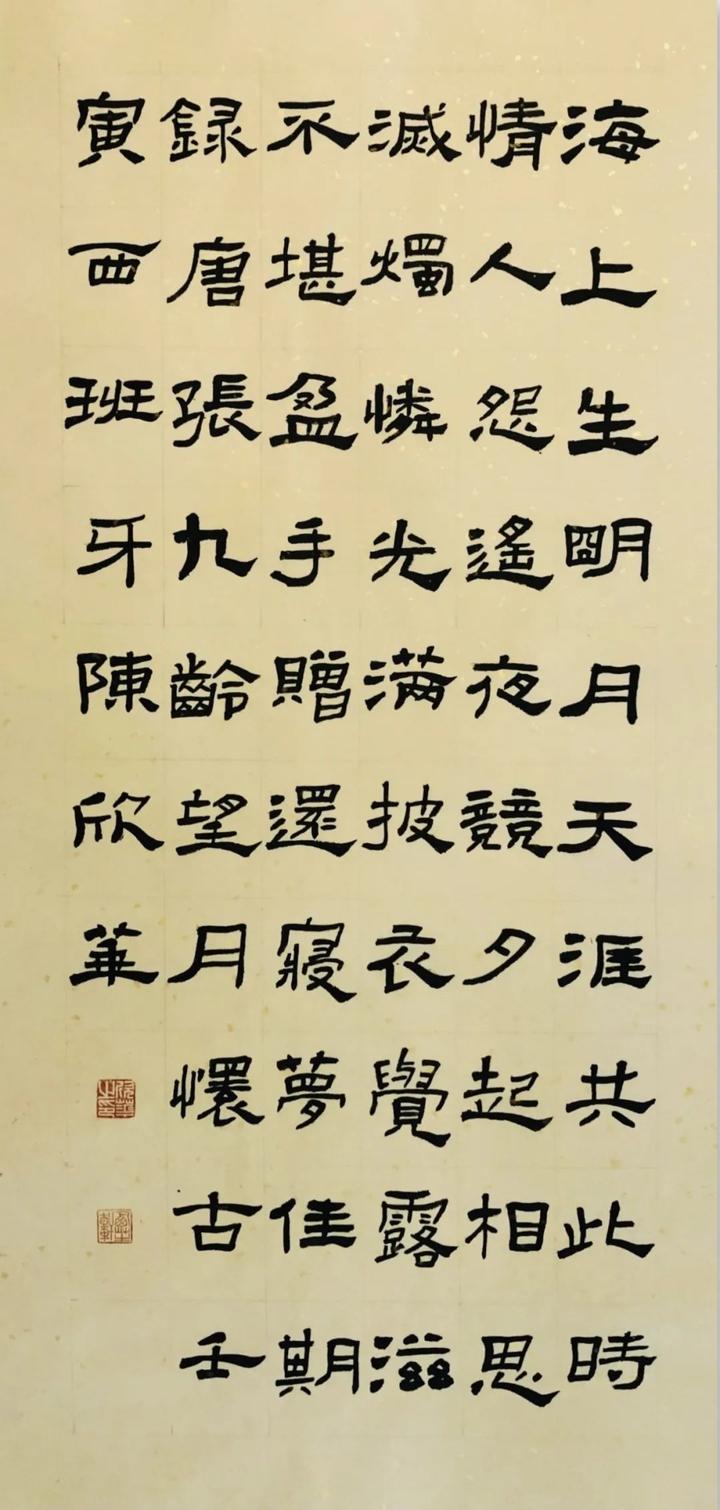 海上生朙月天涯共此時
情人怨遙夜競夕起相思
滅燭憐光滿披衣覺露滋
不堪盈手贈還寢夢佳期
録唐張九齡望月懷古壬
寅西班牙陳欣華